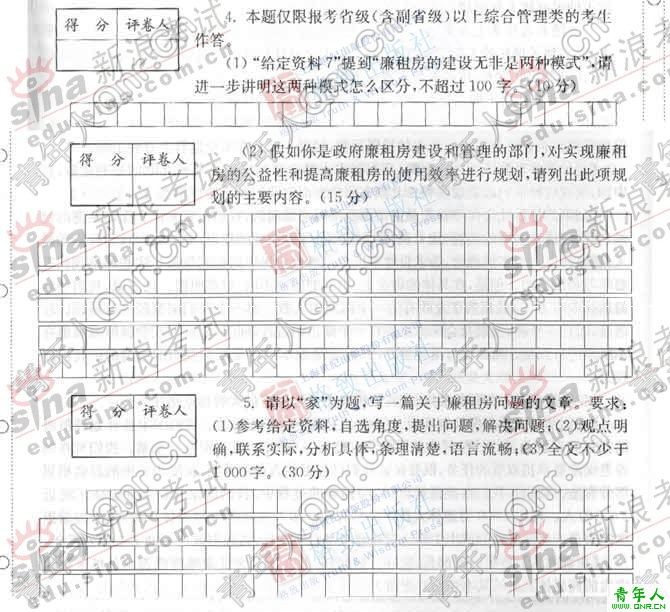 得 分 评卷人
4. 本题仅限报考省级(含副省级)以上综合管理类的考生
作答。
(1)“给定资料7”提到“廉租房的建设无非是两种模式”,请
进一步讲明这两种模式怎么区分,不超过100字。(10分)
得 分 评卷人
(2) 假如你是政府廉租房建设和管理的部门,对实现廉租
房的公益性和提高廉租房的使用效率进行规划,请列出此项规
划的主要内容。(15分)
得 分 评卷人
5. 请以“家”为题,写一篇关于廉租房问题的文章。要求:
(1)参考给定资料,自选角度,提出问题,解决问题;(2)观点明
确,联系实际,分析具体,条理清楚,语言流畅;(3)全文不少于
1000字。(30分)
sina 新浪考试
edu.sina.com.cn
青年人Qnr.Cn
格致出版社
青年人
WWW.QNR.CN